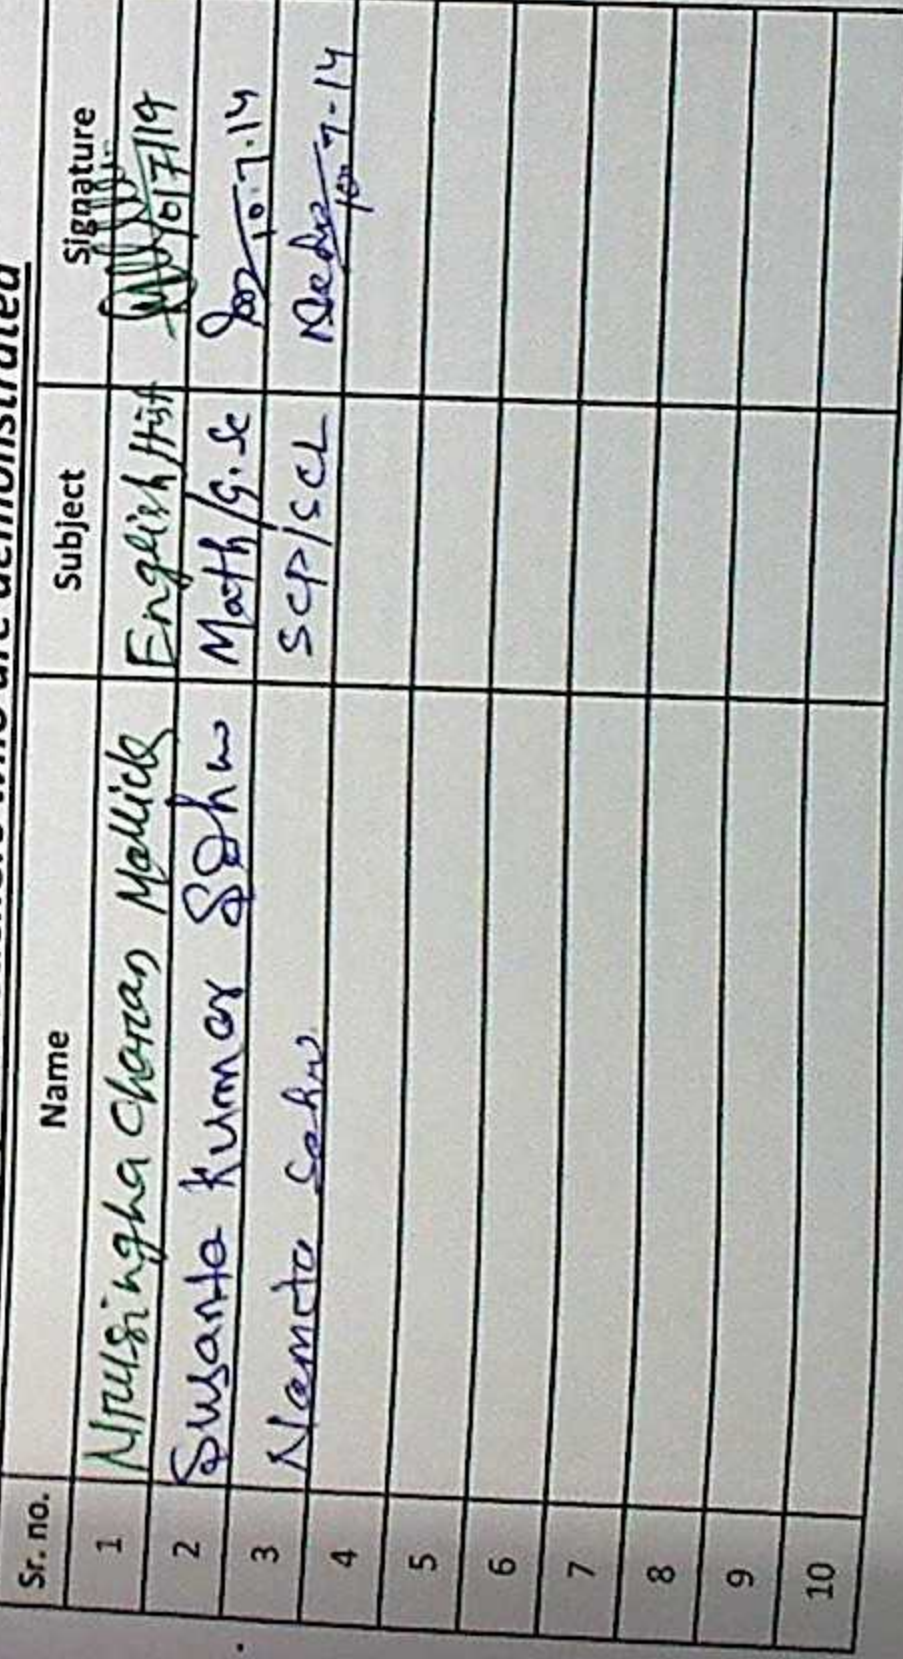 who are demonstrated
Sr. no. Name Subject Signature
1 Nrusingha Charan Mallick English/Hist 10/7/19
2 Susanta Kumar Sahu Math/G.Sc 10.7.14
3 Namita Sahu SCP/SCL 10.7.14
4
5
6
7
8
9
10